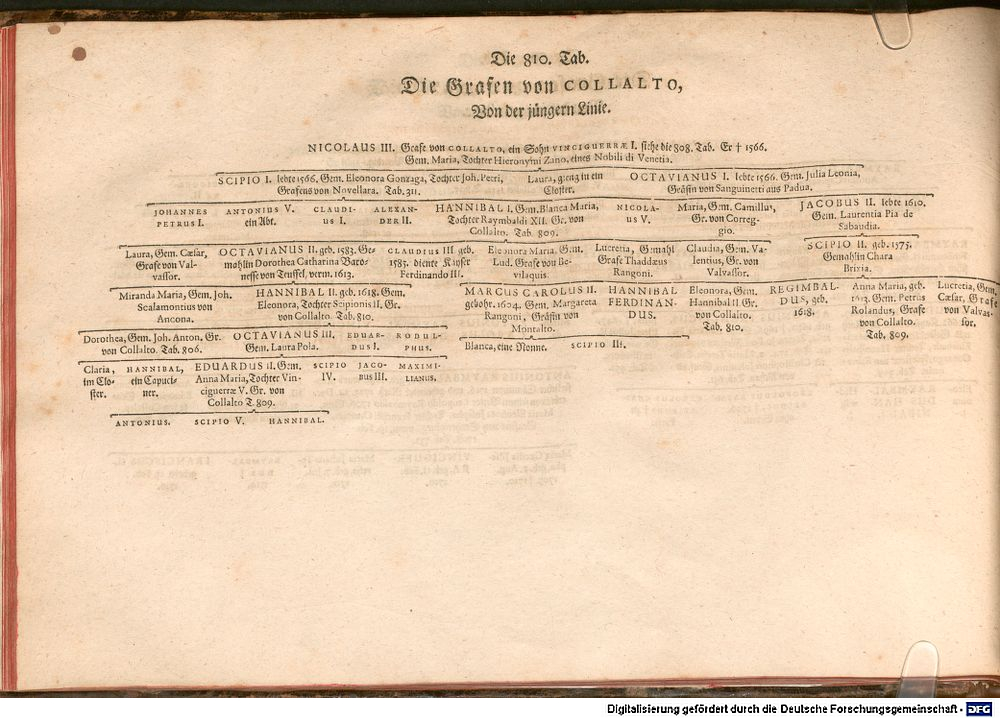 Die 810. Tab.
Die Grafen von COLLALTO,
Von der jüngern Linie.
NICOLAUS III. Grafe von COLLALTO, ein Sohn VINCIGUERRÆ I. siehe die 808. Tab. Er † 1566.
Gem. Maria, Tochter Hieronymi Zano, eines Nobili di Venetia.
SCIPIO I. lebte 1566. Gem. Eleonora Gonzaga, Tochter Joh. Petri,
Grafens von Novellara. Tab. 311.
Laura, gieng in ein
Closter.
OCTAVIANUS I. lebte 1566. Gem. Julia Leonia,
Gräfin von Sanguinetti aus Padua.
JOHANNES
PETRUS I.
ANTONIUS V.
ein Abt.
CLAUDI-
US I.
ALEXAN-
DER II.
HANNIBAL I. Gem. Blanca Maria,
Tochter Raymbaldi XII. Gr. von
Collalto. Tab. 809.
NICOLA-
US V.
Maria, Gem. Camillus,
Gr. von Correg-
gio.
JACOBUS II. lebte 1610.
Gem. Laurentia Pia de
Sabaudia.
Laura, Gem. Cæsar,
Grafe von Val-
vassor.
OCTAVIANUS II. geb. 1583. Ge-
mahlin Dorothea Catharina Baro-
nesse von Teuffel, verm. 1613.
CLAUDIUS III. geb.
1585. diente Kayser
Ferdinando III.
Eleonora Maria, Gem.
Lud. Grafe von Be-
vilaquis.
Lucretia, Gemahl
Grafe Thaddæus
Rangoni.
Claudia, Gem. Va-
lentius, Gr. von
Valvassor.
SCIPIO II. geb. 1575.
Gemahlin Chara
Brixia.
Miranda Maria, Gem. Joh.
Scalamontius von
Ancona.
HANNIBAL II. geb. 1618. Gem.
Eleonora, Tochter Scipionis II. Gr.
von Collalto. Tab. 810.
MARCUS CAROLUS II.
gebohr. 1604. Gem. Margareta
Ranguni, Gräfin von
Montalto.
HANNIBAL
FERDINAN-
DUS.
Eleonora, Gem.
Hannibal II. Gr.
von Collalto.
Tab. 810.
REGIMBAL-
DUS, geb.
1618.
Anna Maria, geb.
1613. Gem. Petrus
Rolandus, Grafe
von Collalto.
Tab. 809.
Lucretia, Gem.
Cæsar, Grafe
von Valvas-
sor.
Dorothea, Gem. Joh. Anton. Gr.
von Collalto. Tab. 806.
OCTAVIANUS III.
Gem. Laura Pola.
EDUAR-
DUS I.
RODUL-
PHUS.
Blanca, eine Nonne.
SCIPIO III.
Claria,
im Clo-
ster.
HANNIBAL,
ein Capuci-
ner.
EDUARDUS II. Gem.
Anna Maria, Tochter Vin-
ciguerræ V. Gr. von
Collalto T. 809.
SCIPIO
IV.
JACO-
BUS III.
MAXIMI-
LIANUS.
ANTONIUS.
SCIPIO V.
HANNIBAL.
Digitalisierung gefördert durch die Deutsche Forschungsgemeinschaft - DFG